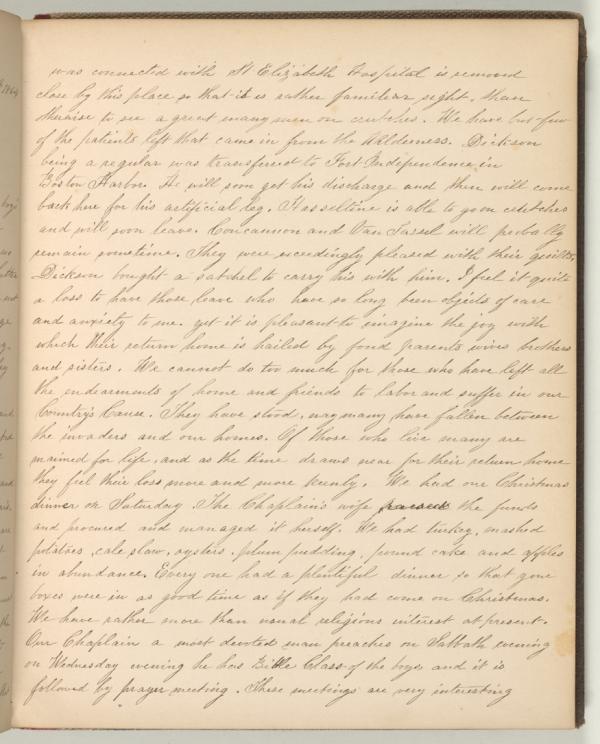 was connected with St Elizabeth Hospital is removed
close by this place so that it is rather familiar sight, than
therwise to see a great many men on crutches. We have but few
of the patients left that came in from the Wilderness. Dickson
being a regular was transferred to Fort Independence in
Boston Harbor. He will soon get his discharge and then will come
back here for his artificial leg. Hasseltine is able to go on crutches
and will soon leave. Concannon and Van Tassel will probally
remain sometime. They were exceedingly pleased with their quilts,
Dickson bought a satchel to carry his with him. I feel it quite
a loss to have those leave who have so long been objects of care
and anxiety to me. yet it is pleasant to imagine the joy with
which their return home is hailed by fond parents wives brothers
and sisters. We cannot do too much for those who have left all
the endearments of home and friends to labor and suffer in our
Country's Cause. They have stood, nay many have fallen between
the invaders and our homes. Of those who live many are
maimed for life, and as the time draws near for their return home
they feel their loss more and more keenly. We had our Christmas
dinner on Saturday. The Chaplain's wife raised the funds
and procured and managed it herself. We had turkey, mashed
potatoes, cale slaw, oysters, plum pudding, pound cake and apples
in abundance. Every one had a plentiful dinner so that your
boxes were in as good time as if they had come on Christmas.
We have rather more than usual religious interest at present.
Our Chaplain a most devoted man preaches on Sabbath evening
on Wednesday evening he has Bible Class of the boys and it is
followed by prayer meeting. These meetings are very interesting